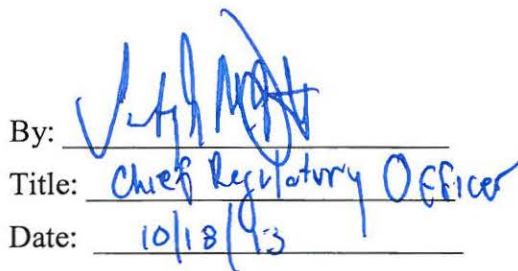 By:
Title: Chief Regulatory Officer
Date: 10/18/13